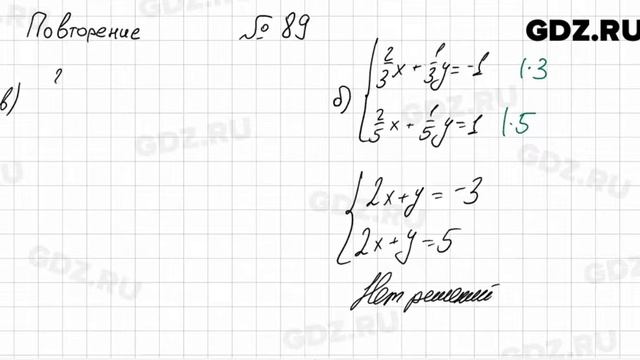 Повторение № 89
GDZ.RU
в) ?
б) { 2/3x + 1/3y = -1 |·3
2/5x + 1/5y = 1 |·5
{ 2x+y = -3
2x+y = 5
Нет решений
GDZ.RU
GDZ.RU
GDZ.RU
GDZ.RU
GDZ.RU
GDZ.RU
GDZ.RU